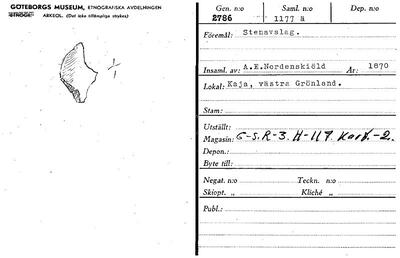 GÖTEBORGS MUSEUM, ETNOGRAFISKA AVDELNINGEN
ETNOGR. ARKEOL. (Det icke tillämpliga strykes)
1/1
Gen. n:o Saml. n:o Dep. n:o
2786 1177 a
Föremål: Stenavslag.
Insaml. av: A.E.Nordenskiöld År: 1870
Lokal: Kaja, västra Grönland.
Stam:
Utställt:
Magasin: G-S.R-3. H-117. Kart.-2.
Depon.:
Byte till:
Negat. n:o Teckn. n:o
Skiopt. „ Kliché „
Publ.: